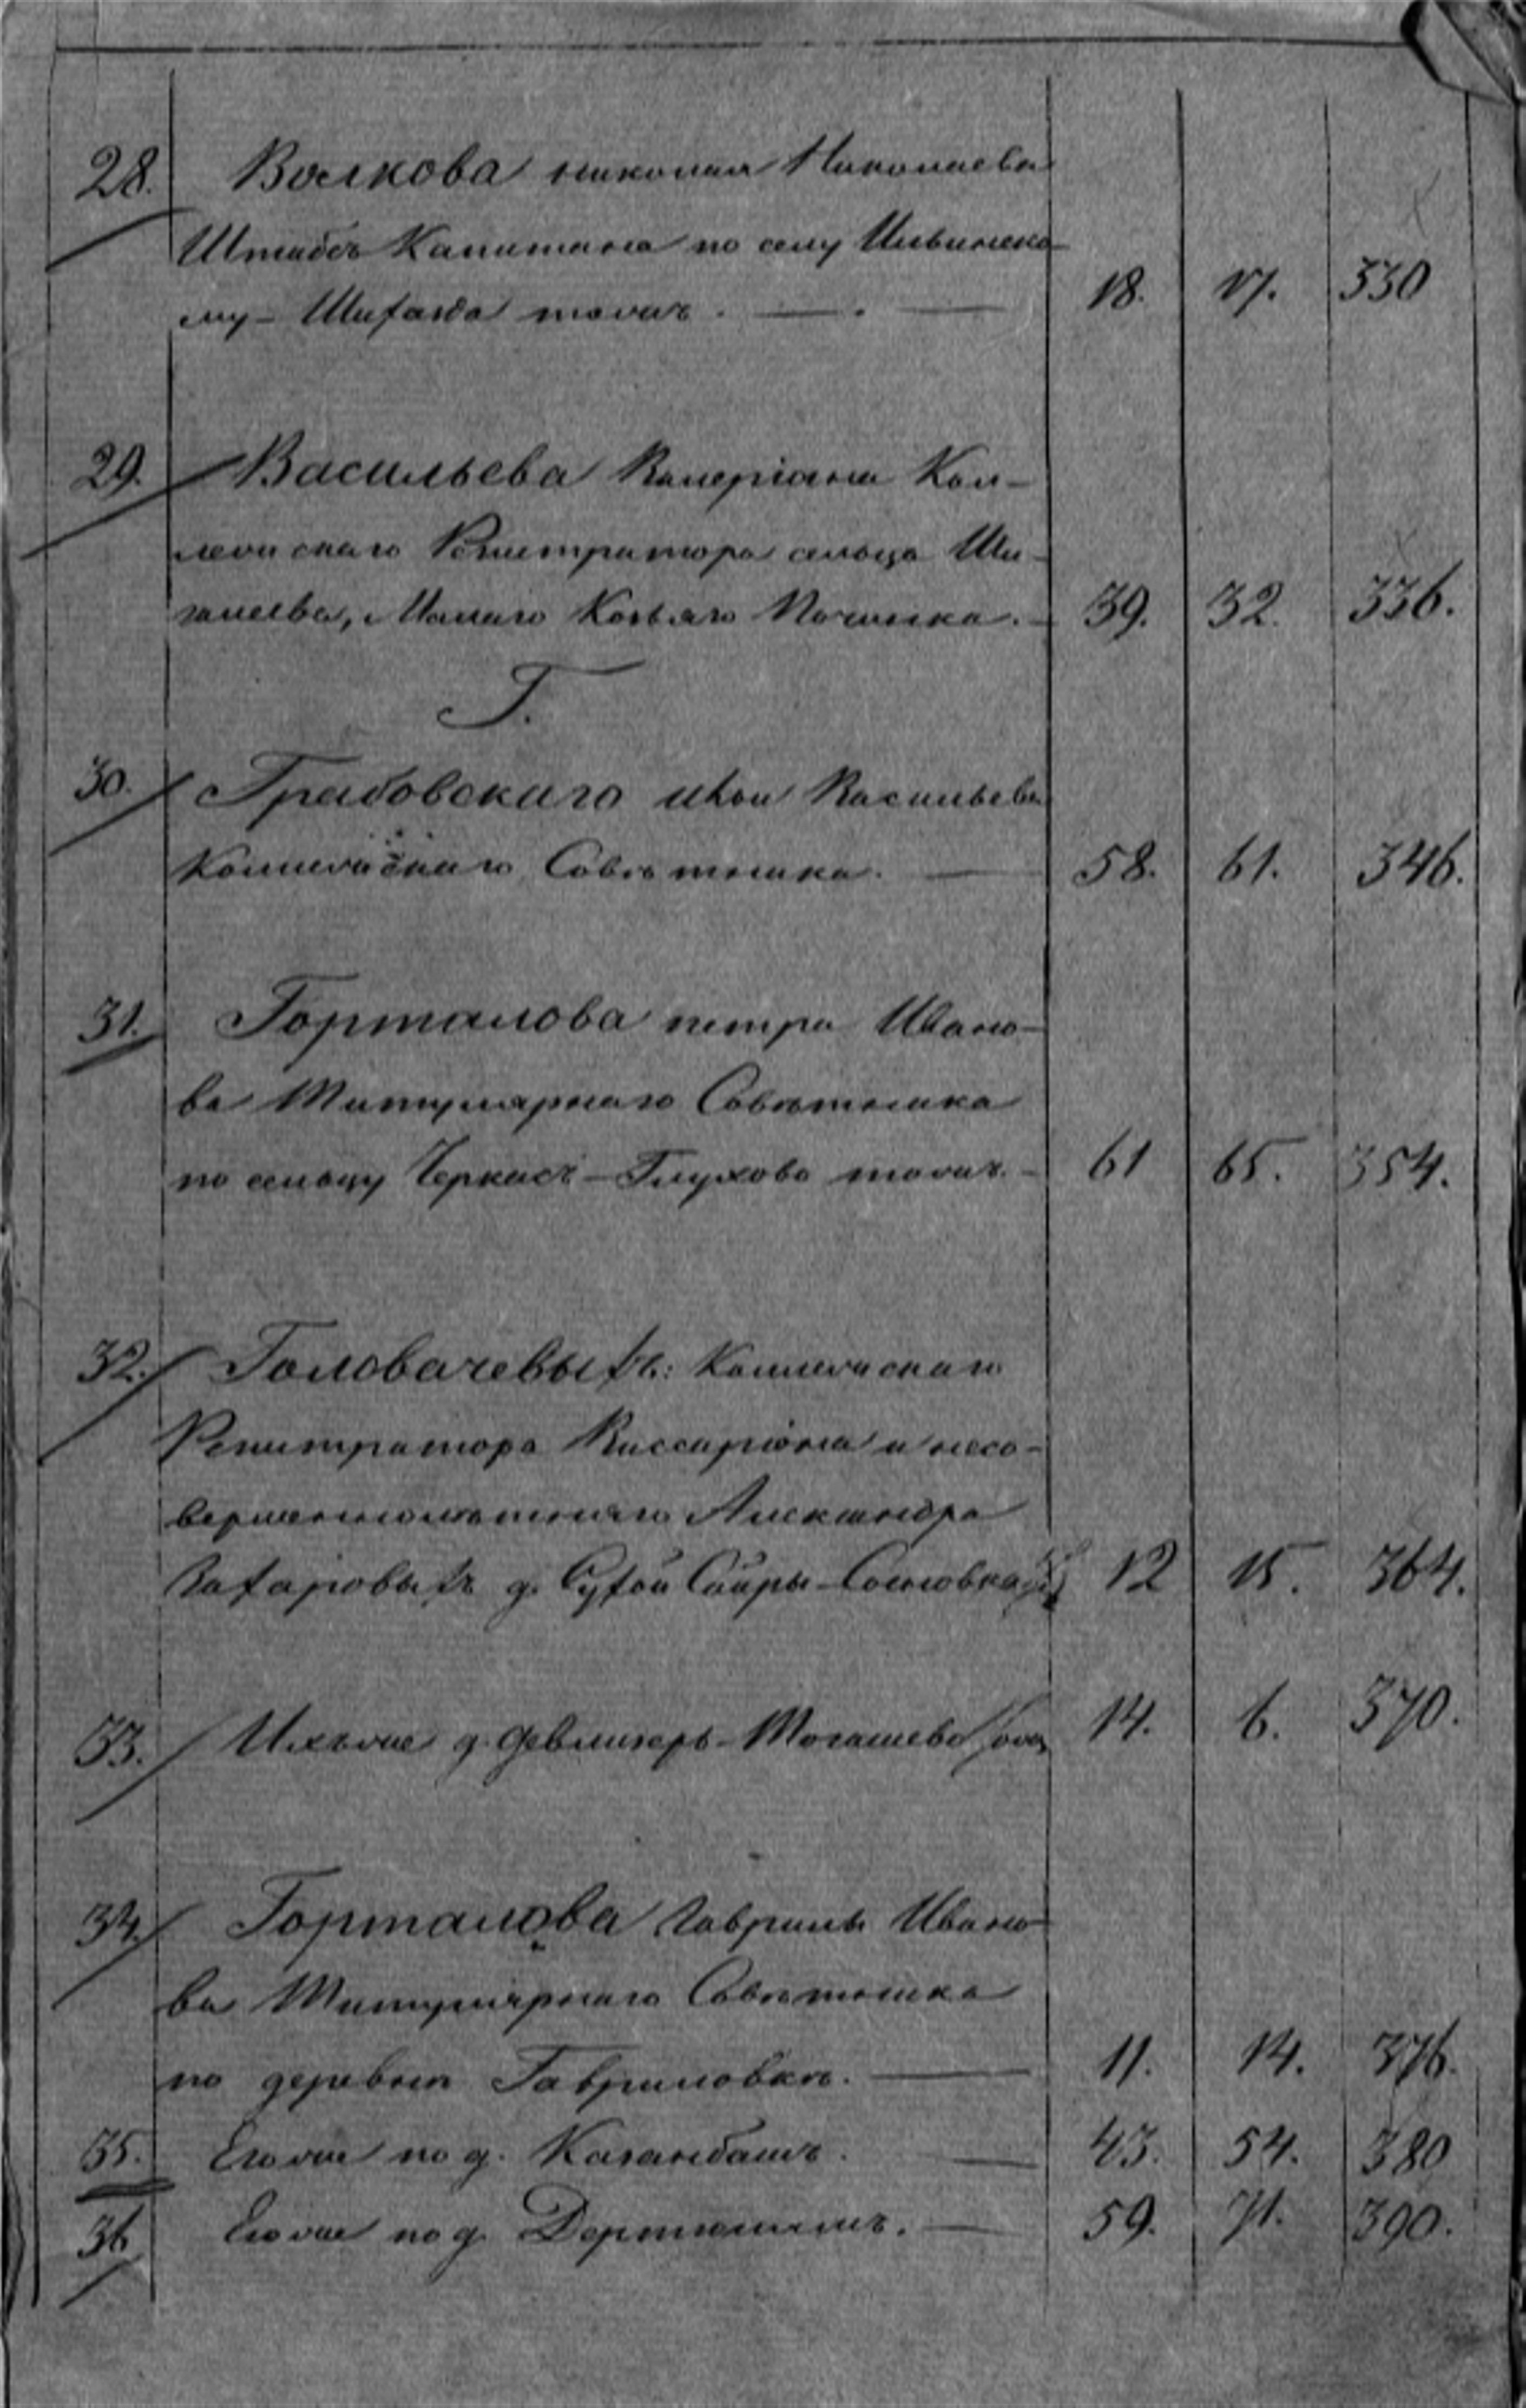 28. Волкова Николая Николаева
Штабсъ Капитана по селу Нивинско-
му-Шихазда тожъ. 18. 17. 330
29. Васильева Валеріана Кол-
лежскаго Регистратора сельца Ши-
галева, Малаго Козьяго Починка. 39. 32. 336.
Г.
30. Грабовскаго Льва Васильева
Коллежскаго Совѣтника. 58. 61. 346.
31. Горталова Петра Ивано-
ва Титулярнаго Совѣтника
по сельцу Черкасъ-Глухово тожъ. 61 65. 354.
32. Головачевыхъ: Коллежскаго
Регистратора Виссаріона и несо-
вершеннолѣтняго Александра
Захаровыхъ д. Сухой Саиры-Сосновка 12 15. 364.
33. Ихъ же д. Девлизерь-Тогашево 14. 6. 370.
34. Горталова Гавріила Ивано-
ва Титулярнаго Совѣтника
по деревнѣ Гавриловкѣ. 11. 14. 376.
35. Его же по д. Казанбашъ. 43. 54. 380
36 Его же по д. Дертюлямъ. 59. 71. 390.